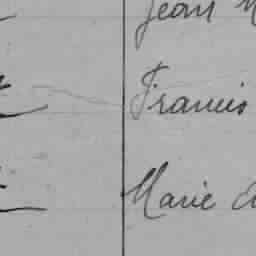 Jean
Francis
Marie